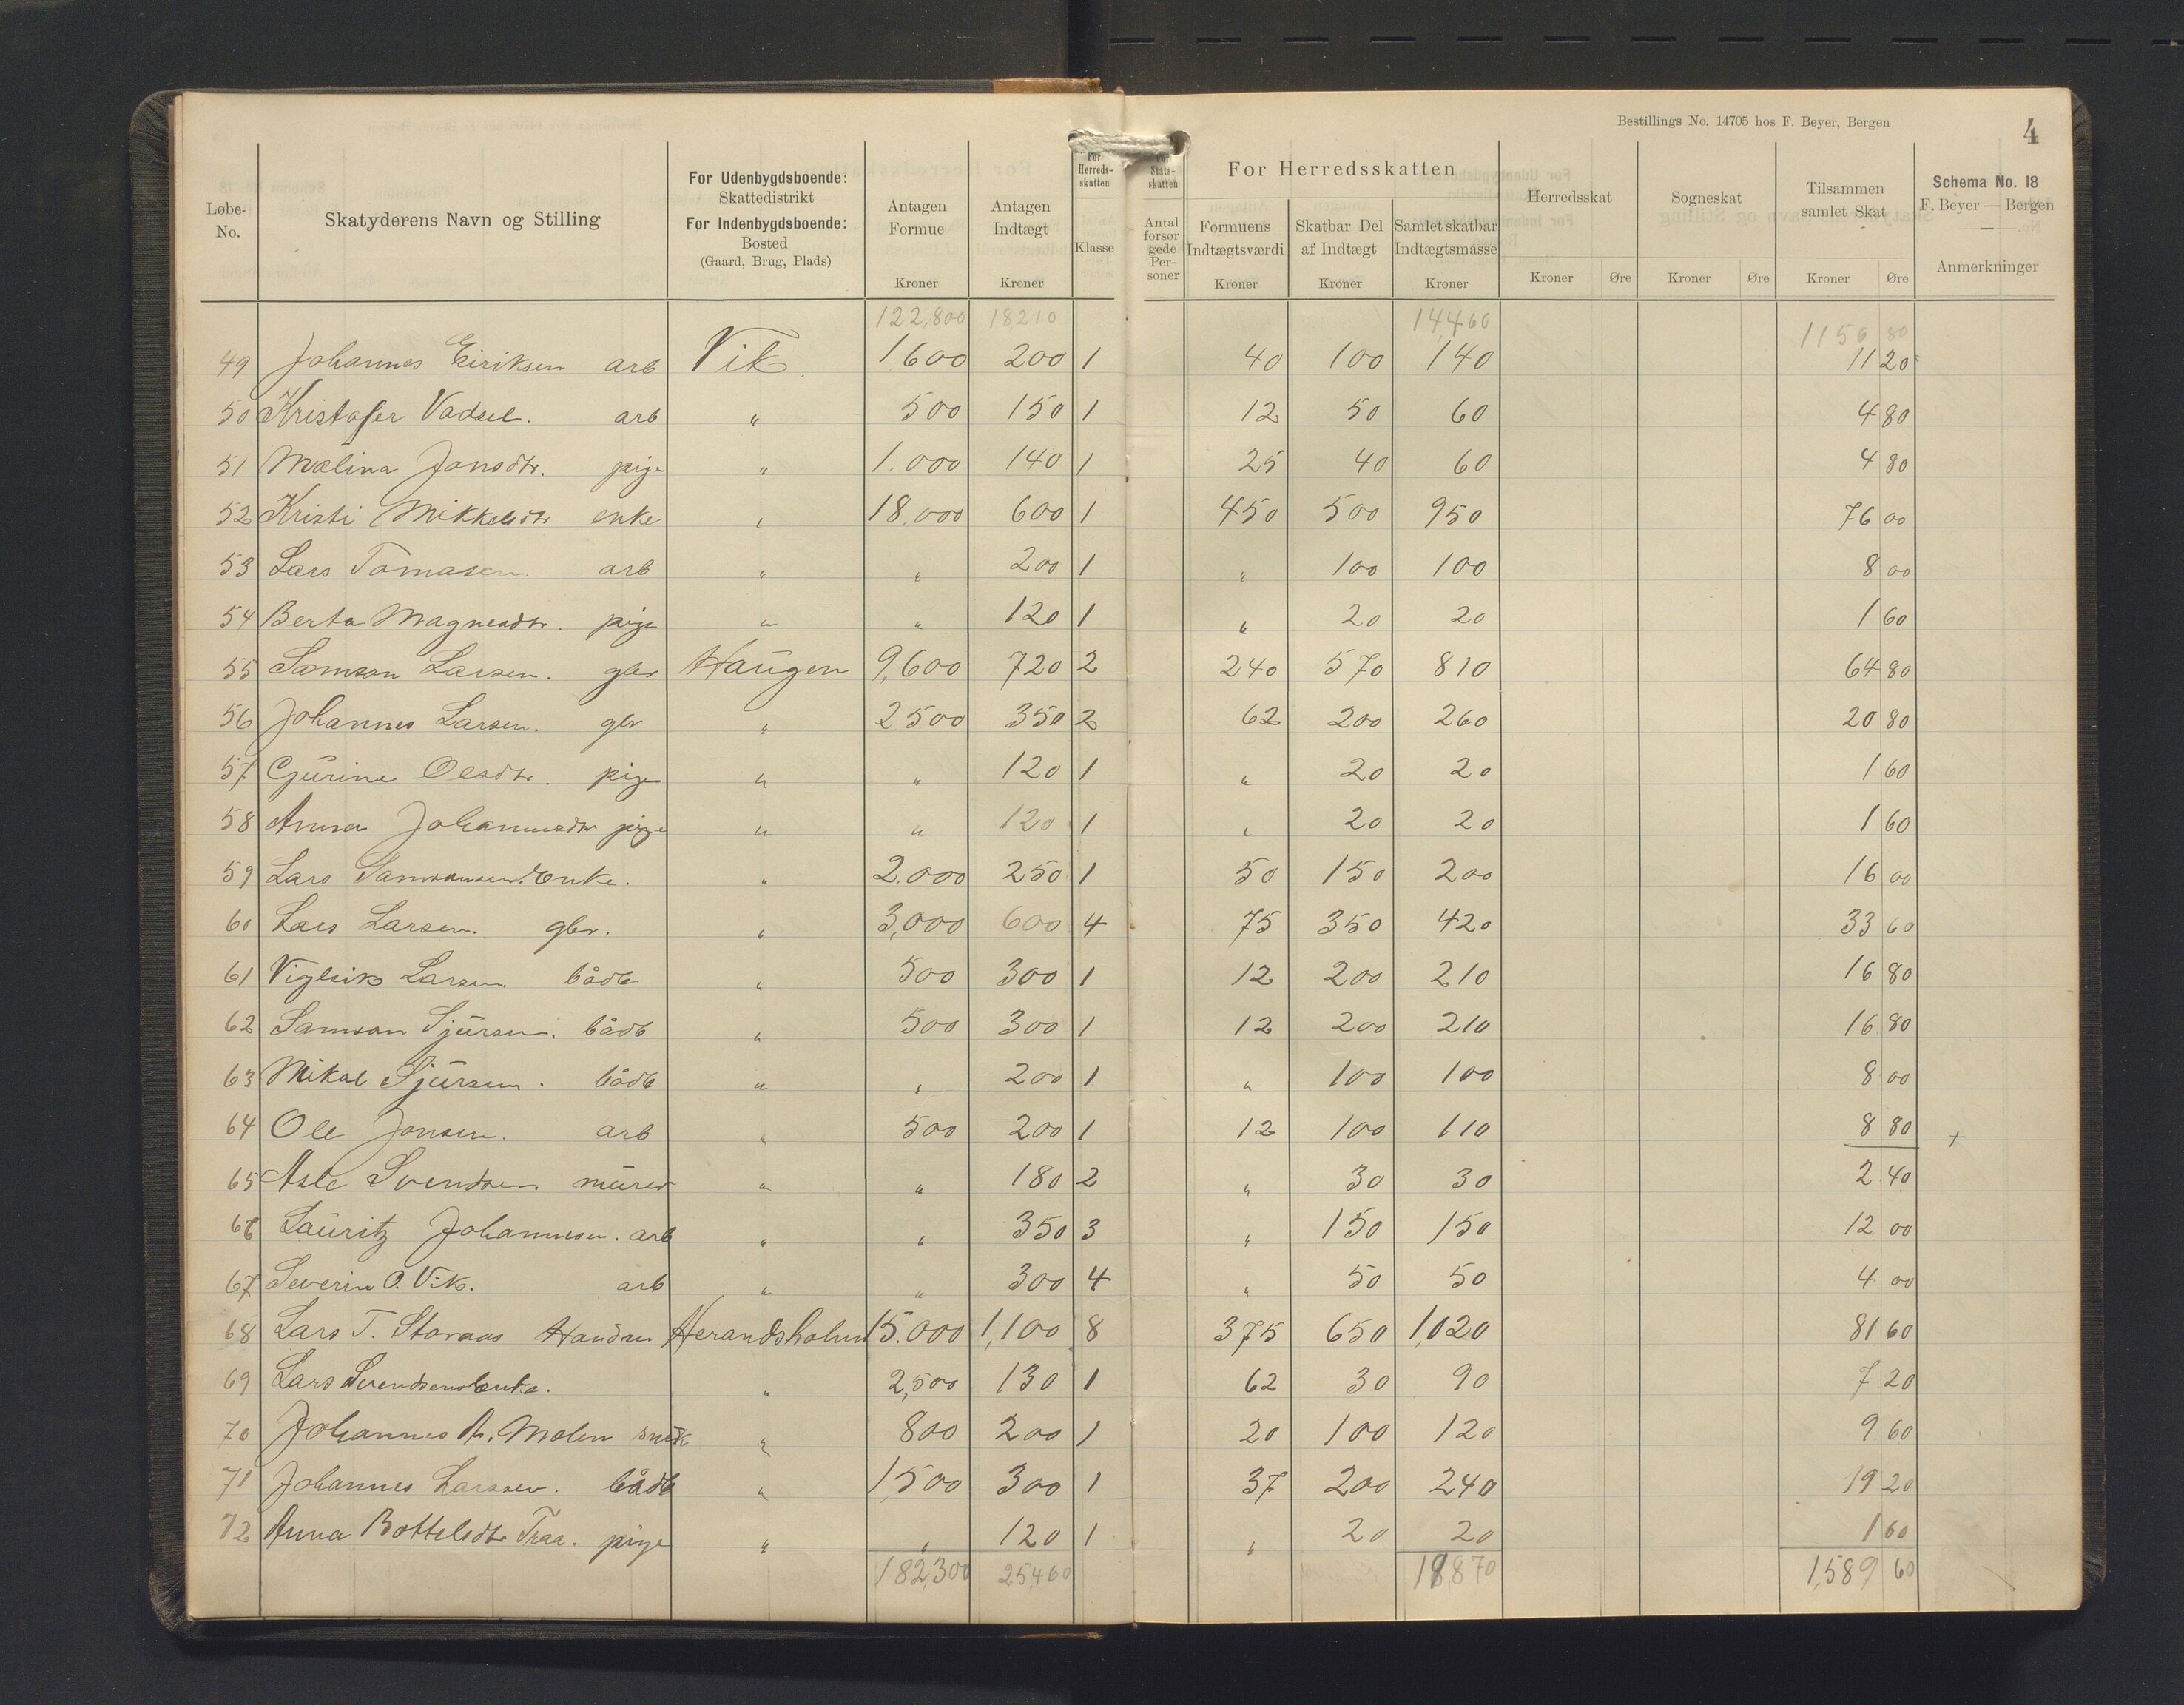 Bestillings No. 14705 hos F. Beyer, Bergen
4
Løbe-No. | Skatyderens Navn og Stilling | For Udenbygdsboende: Skattedistrikt For Indenbygdsboende: Bosted (Gaard, Brug, Plads) | Antagen Formue Kroner | Antagen Indtægt Kroner | For Herreds-skatten Klasse | For Stats-skatten Antal forsør gede Per-soner | For Herredsskatten Formuens Indtægtsværdi Kroner | Skatbar Del af Indtægt Kroner | Samlet skatbar Indtægtsmasse Kroner | Herredsskat Kroner Øre | Sogneskat Kroner Øre | Tilsammen samlet Skat Kroner Øre | Schema No. 18 F. Beyer — Bergen — Anmerkninger
122,800 18210 14,460 1156 80
49 Johannes Eiriksen arb Vik 1600 200 1 40 100 140 11 20
50 Kristofer Vadsel. arb " 500 150 1 12 50 60 4 80
51 Malina Jonsdtr. pige " 1.000 140 1 25 40 60 4 80
52 Kristi Mikkelsdtr enke " 18.000 600 1 450 500 950 76 00
53 Lars Tomasen. arb " " 200 1 " 100 100 8 00
54 Berta Magnesdtr. pige " " 120 1 " 20 20 1 60
55 Samson Larsen. gbr Haugen 9,600 720 2 240 570 810 64 80
56 Johannes Larsen. gbr " 2500 350 2 62 200 260 20 80
57 Gurine Olsdtr. pige " " 120 1 " 20 20 1 60
58 Anna Johannesdtr pige " " 120 1 " 20 20 1 60
59 Lars Samsonsens Enke. " 2.000 250 1 50 150 200 16 00
60 Lars Larsen. gbr. " 3,000 600 4 75 350 420 33 60
61 Vigleik Larsen bådb " 500 300 1 12 200 210 16 80
62 Samson Sjursen. bådb " 500 300 1 12 200 210 16 80
63 Mikal Sjursen. bådb " " 200 1 " 100 100 8 00
64 Ole Jonsen. arb " 500 200 1 12 100 110 8 80 +
65 Asle Svendsen. murer " " 180 2 " 30 30 2 40
66 Lauritz Johannesen. arb " " 350 3 " 150 150 12 00
67 Severin O. Vik. arb " " 300 4 " 50 50 4 00
68 Lars T. Storaas Handm Herandsholm 15.000 1,100 8 375 650 1,020 81 60
69 Lars Svendsens enke. " 2,500 130 1 62 30 90 7 20
70 Johannes A. Molen snedk " 800 200 1 20 100 120 9 60
71 Johannes Larssen. bådb " 1,500 300 1 37 200 240 19 20
72 Anna Bottelsdtr Traa. pige " " 120 1 " 20 20 1 60
182,300 25460 19,870 1,589 60